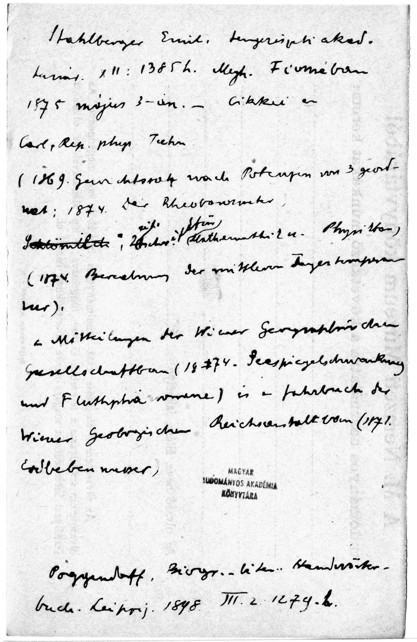 Stahlberger Emil. tengerészeti akad.
tanár. XII: 1385 h. Megh. Fiuméban
1875 május 3-án. — Cikkei a
Carl, Rep. phys. Techn
(1869. Gewichtssatz nach Potenzen von 3 geord-
net; 1874. Der Rheobarometer)
Schlömilch "Zeitschr. für Mathematik u. Physikban
(1874. Berechnung der mittleren Tagestempera-
tur).
a Mitteilungen der Wiener Geographischen
Gesellschaftban (1874. Seespiegelschwankung
und Fluthphänomene) és a Jahrbuch der
Wiener Geologischen Reichsanstaltban (1871.
Erdbebenmesser)
MAGYAR
TUDOMÁNYOS AKADÉMIA
KÖNYVTÁRA
Poggendorff, Biogr.-liter. Handwörter-
buch. Leipzig. 1898 III. 2. 1279. l.